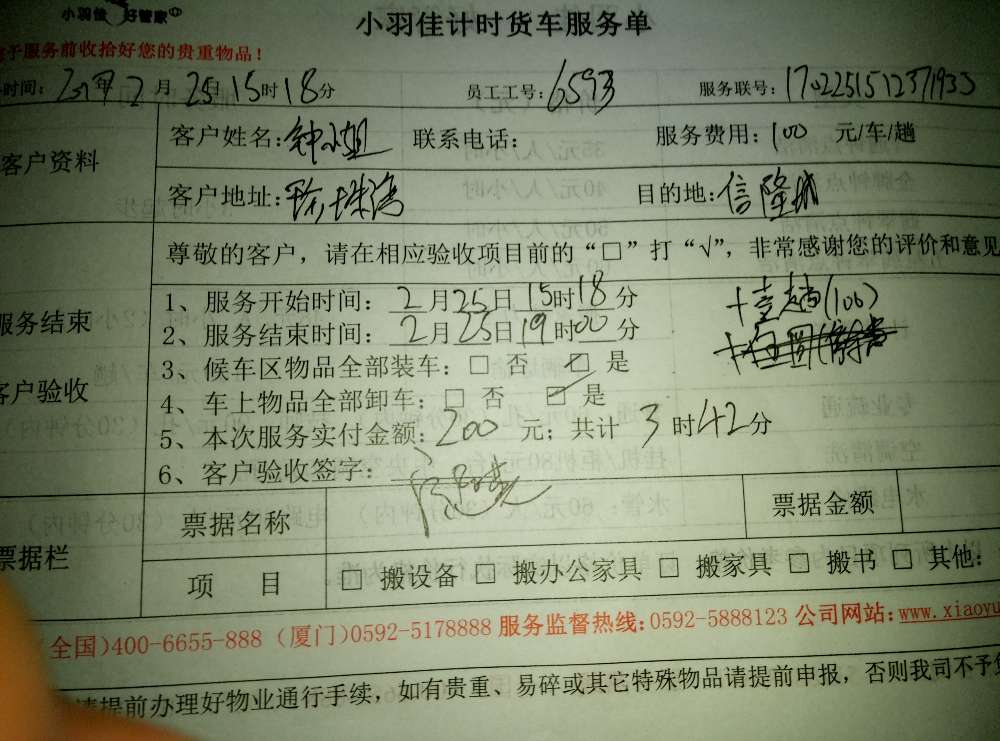 小羽佳 好管家
小羽佳计时货车服务单
于服务前收拾好您的贵重物品！
时间: 2017年2月25日15时18分 员工工号: 6593 服务联号: 1702251512371933
客户资料
客户姓名: 钟小姐 联系电话: 服务费用: 100 元/车/趟
客户地址: 珍珠湾 目的地: 信隆城
尊敬的客户，请在相应验收项目前的“□”打“√”，非常感谢您的评价和意见
服务结束
客户验收
1、服务开始时间: 2月25日15时18分
2、服务结束时间: 2月25日19时00分
+壹趟(100)
3、候车区物品全部装车: □ 否 ☑ 是
4、车上物品全部卸车: □ 否 ☑ 是
5、本次服务实付金额: 200 元; 共计 3时42分
6、客户验收签字:
票据栏
票据名称 票据金额
项 目 □ 搬设备 □ 搬办公家具 □ 搬家具 □ 搬书 □ 其他:
全国)400-6655-888 (厦门)0592-5178888 服务监督热线: 0592-5888123 公司网站: www.xiaoyu
请提前办理好物业通行手续，如有贵重、易碎或其它特殊物品请提前申报，否则我司不予